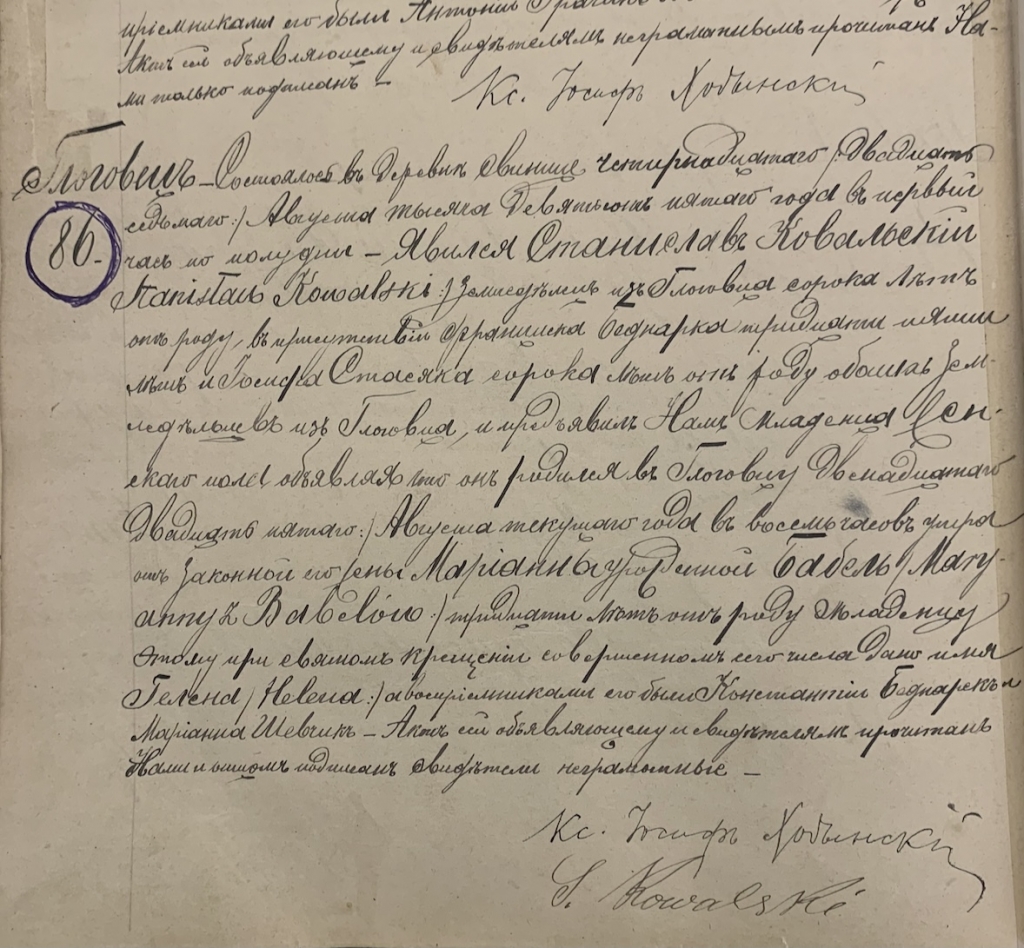 пріемниками его были Антоній
Актъ сей объявляющему и свидѣтелямъ неграмотнымъ прочитанъ На-
ми только подписанъ –
Кс. Іосифъ Ходынскій
Глоговецъ – Состоялось въ деревнѣ Свинице четырнадцатаго / Двадцать
седьмаго :/ Августа тысяча девятьсотъ пятаго года въ первый
86. часъ по полудни – Явился Станиславъ Ковальскій
Stanisław Kowalski :/ Земледѣлецъ изъ Глоговца сорока лѣтъ
отъ роду, въ присутствіи Францишка Беднарка тридцати пяти
лѣтъ и Іосифа Стасяка сорока лѣтъ отъ роду обоихъ Зем-
ледѣльцевъ изъ Глоговца, и предъявилъ Намъ младенца Жен-
скаго пола объявляя что онъ родился въ Глоговцу Двенадцатаго
Двадцать пятаго :/ Августа текущаго года въ восемь часовъ утра
отъ Законной его жены Маріанны урожденной Бабель / Mary-
anny z Babelów :/ тридцати лѣтъ отъ роду Младенцу
этому при святомъ крещеніи совершенномъ сего числа дано имя
Гелена / Helena :/ а воспріемниками его были Константій Беднарекъ и
Маріанна Шевчикъ – Актъ сей объявляющему и свидѣтелямъ прочитанъ
Нами и отцомъ подписанъ свидѣтели неграмотные –
Кс. Іосифъ Ходынскій
S. Kowalski